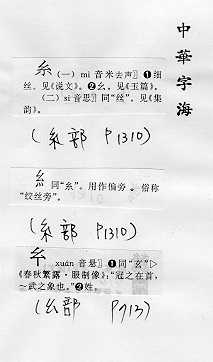 中華字海
糸 (一) mì 音米去声〗❶细
丝。见《说文》。❷幺。见《玉篇》。
(二) sī 音思〗同“丝”。见《集
韵》。
(糸部 P1310)
糹 同“糸”。用作偏旁。俗称
“绞丝旁”。
(糸部 P1310)
xuán 音悬〗❶同“玄”▷
《春秋繁露·服制像》:“冠之在首,
～武之象也。”❷姓。
(幺部 P713)